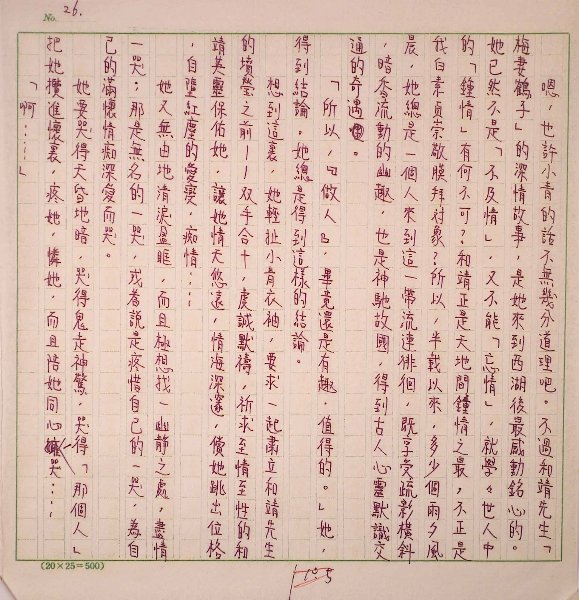 No. 26.
嗯,也許小青的話不無幾分道理吧。不過和靖先生「
梅妻鶴子」的深情故事,是她來到西湖後最感動銘心的。
她已然不是「不及情」,又不能「忘情」,就學々世人中
的「鍾情」有何不可?和靖正是天地間鍾情之最,不正是
我白素貞崇敬膜拜對象?所以,半載以來,多少個雨夕風
晨,她總是一個人來到這一帶流連徘徊,既享受疏影橫斜
,暗香流動的幽趣,也是神馳故國,得到古人心靈默識交
通的奇遇。
「所以,『做人』,畢竟還是有趣,值得的。」她,
得到結論。她總是得到這樣的結論。
想到這裏,她輕扯小青衣袖,要求一起肅立和靖先生
的墳塋之前——双手合十,虔誠默禱,祈求至情至性的和
靖英靈保佑她,讓她情天悠遠,情海深邃,償她跳出位格
,自墮紅塵的愛孽,痴情……
她又無由地清淚盈眶,而且極想找一幽靜之處,盡情
一哭;那是無名的一哭,或者說是疼惜自己的一哭,為自
己的滿懷情痴深愛而哭。
她要哭得天昏地暗,哭得鬼走神驚,哭得「那個人」
把她攬進懷裏,疼她,憐她,而且陪她同心哭……
「啊……」
(20×25=500)
105